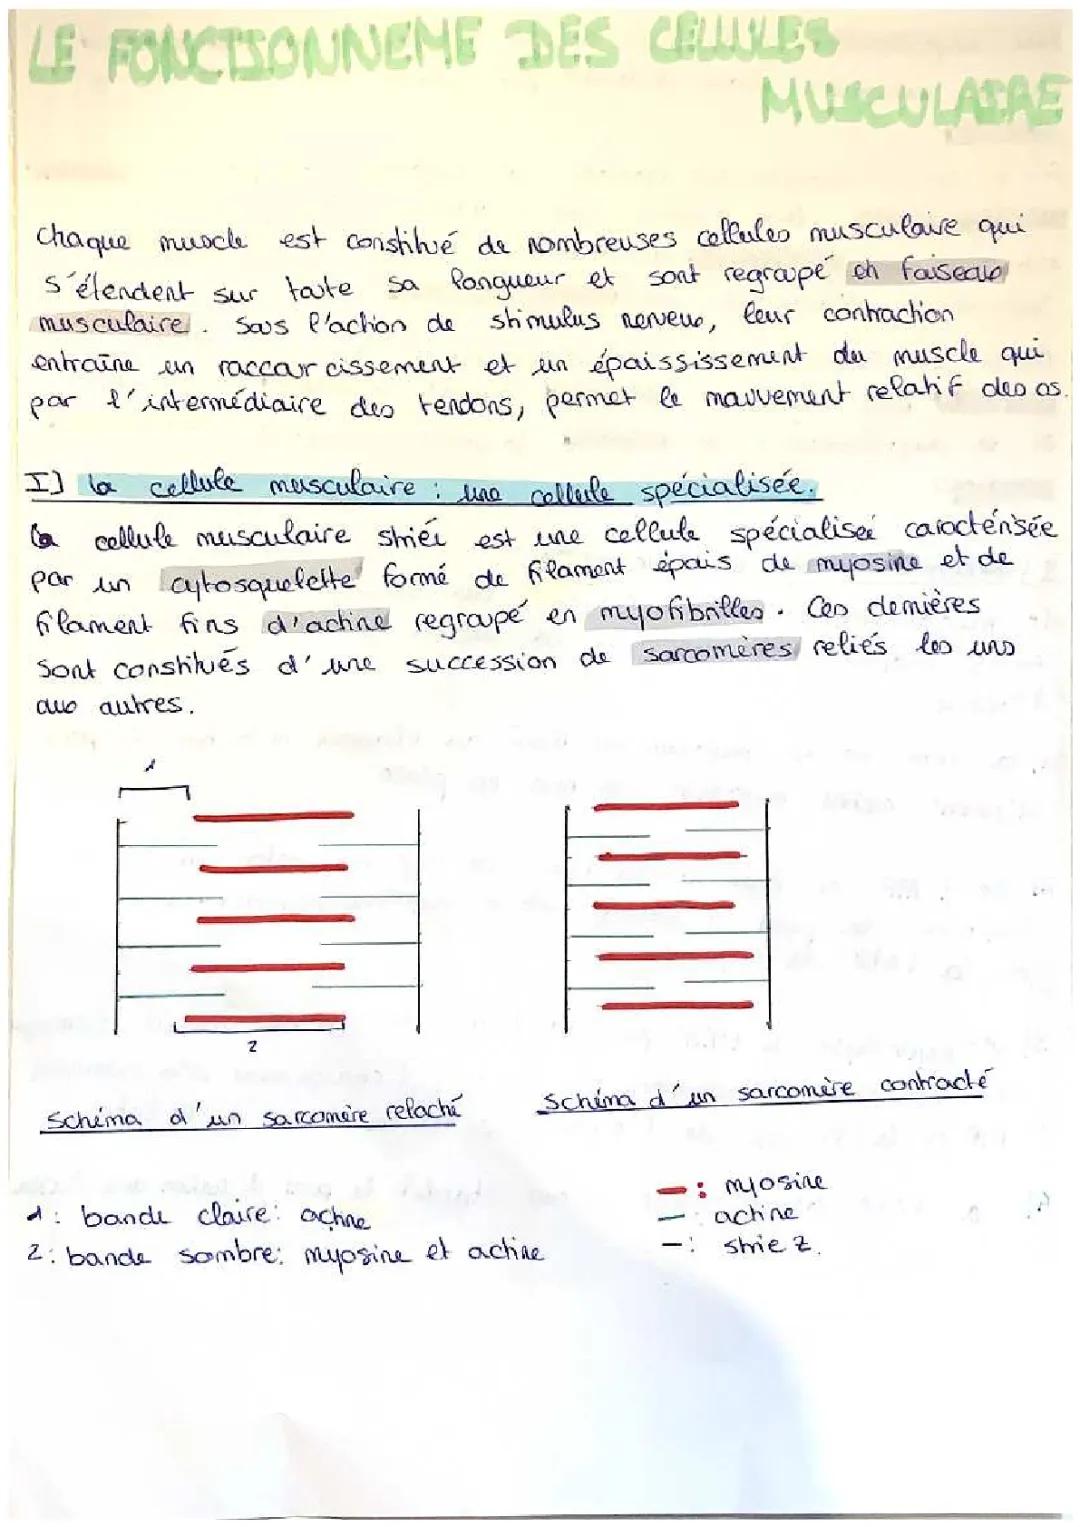 LE FONCTIONNEME DES CELLULES
MUSCULAIRE
Chaque muscle est constitué de nombreuses cellules musculaire qui
s'étendent sur toute sa longueur et sont regroupé en faisceau
musculaire. Sous l'action de stimulus nerveux, leur contraction
entraîne un raccourcissement et un épaississement du muscle qui
par l'intermédiaire des tendons, permet le mouvement relatif des os.
I] la cellule musculaire : une cellule spécialisée.
la cellule musculaire striéi est une cellule spécialiseé caractérisée
par un cytosquelette formé de filament épais de myosine et de
filament fins d'actine regroupé en myofibrilles. Ces dernières
sont constitués d'une succession de sarcomères reliés les uns
aux autres.
1
2
Schéma d'un sarcomère relaché
Schéma d'un sarcomère contracté
1 : bande claire: actine
2: bande sombre: myosine et actine
: myosine
: actine
: strie Z.